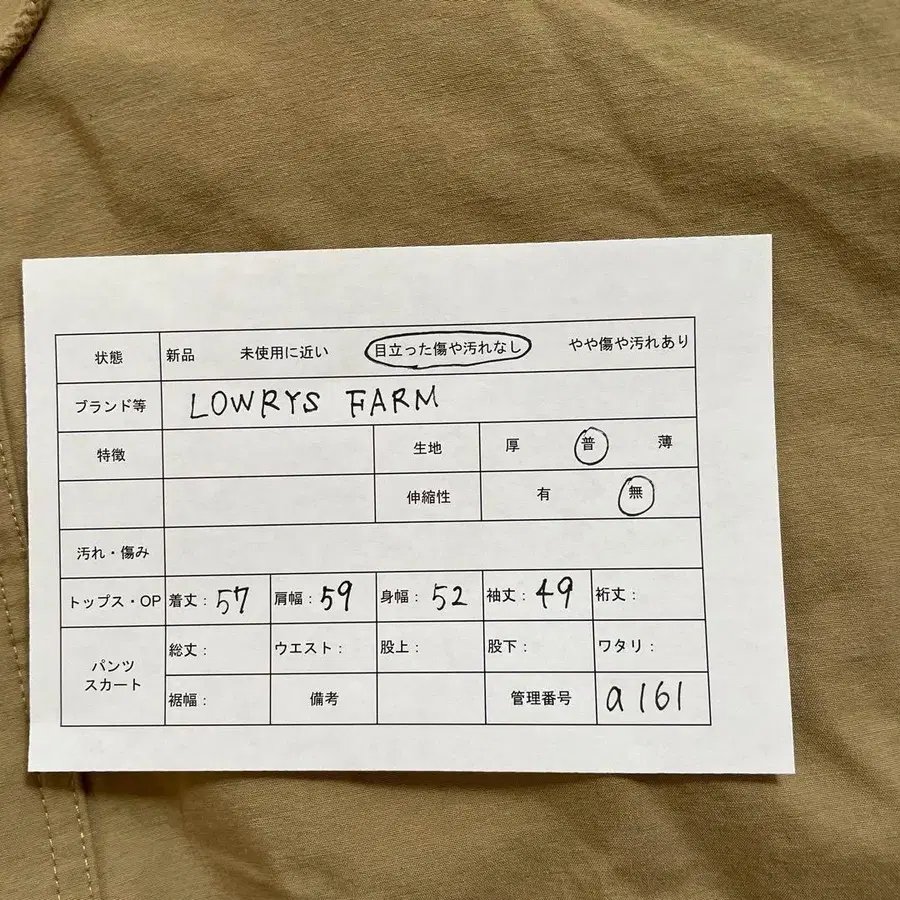 状態 新品 未使用に近い 目立った傷や汚れなし やや傷や汚れあり
ブランド等 LOWRYS FARM
特徴 生地 厚 普 薄
伸縮性 有 無
汚れ・傷み
トップス・OP 着丈：57 肩幅：59 身幅：52 袖丈：49 裄丈：
パンツ スカート 総丈： ウエスト： 股上： 股下： ワタリ：
裾幅： 備考 管理番号 a161